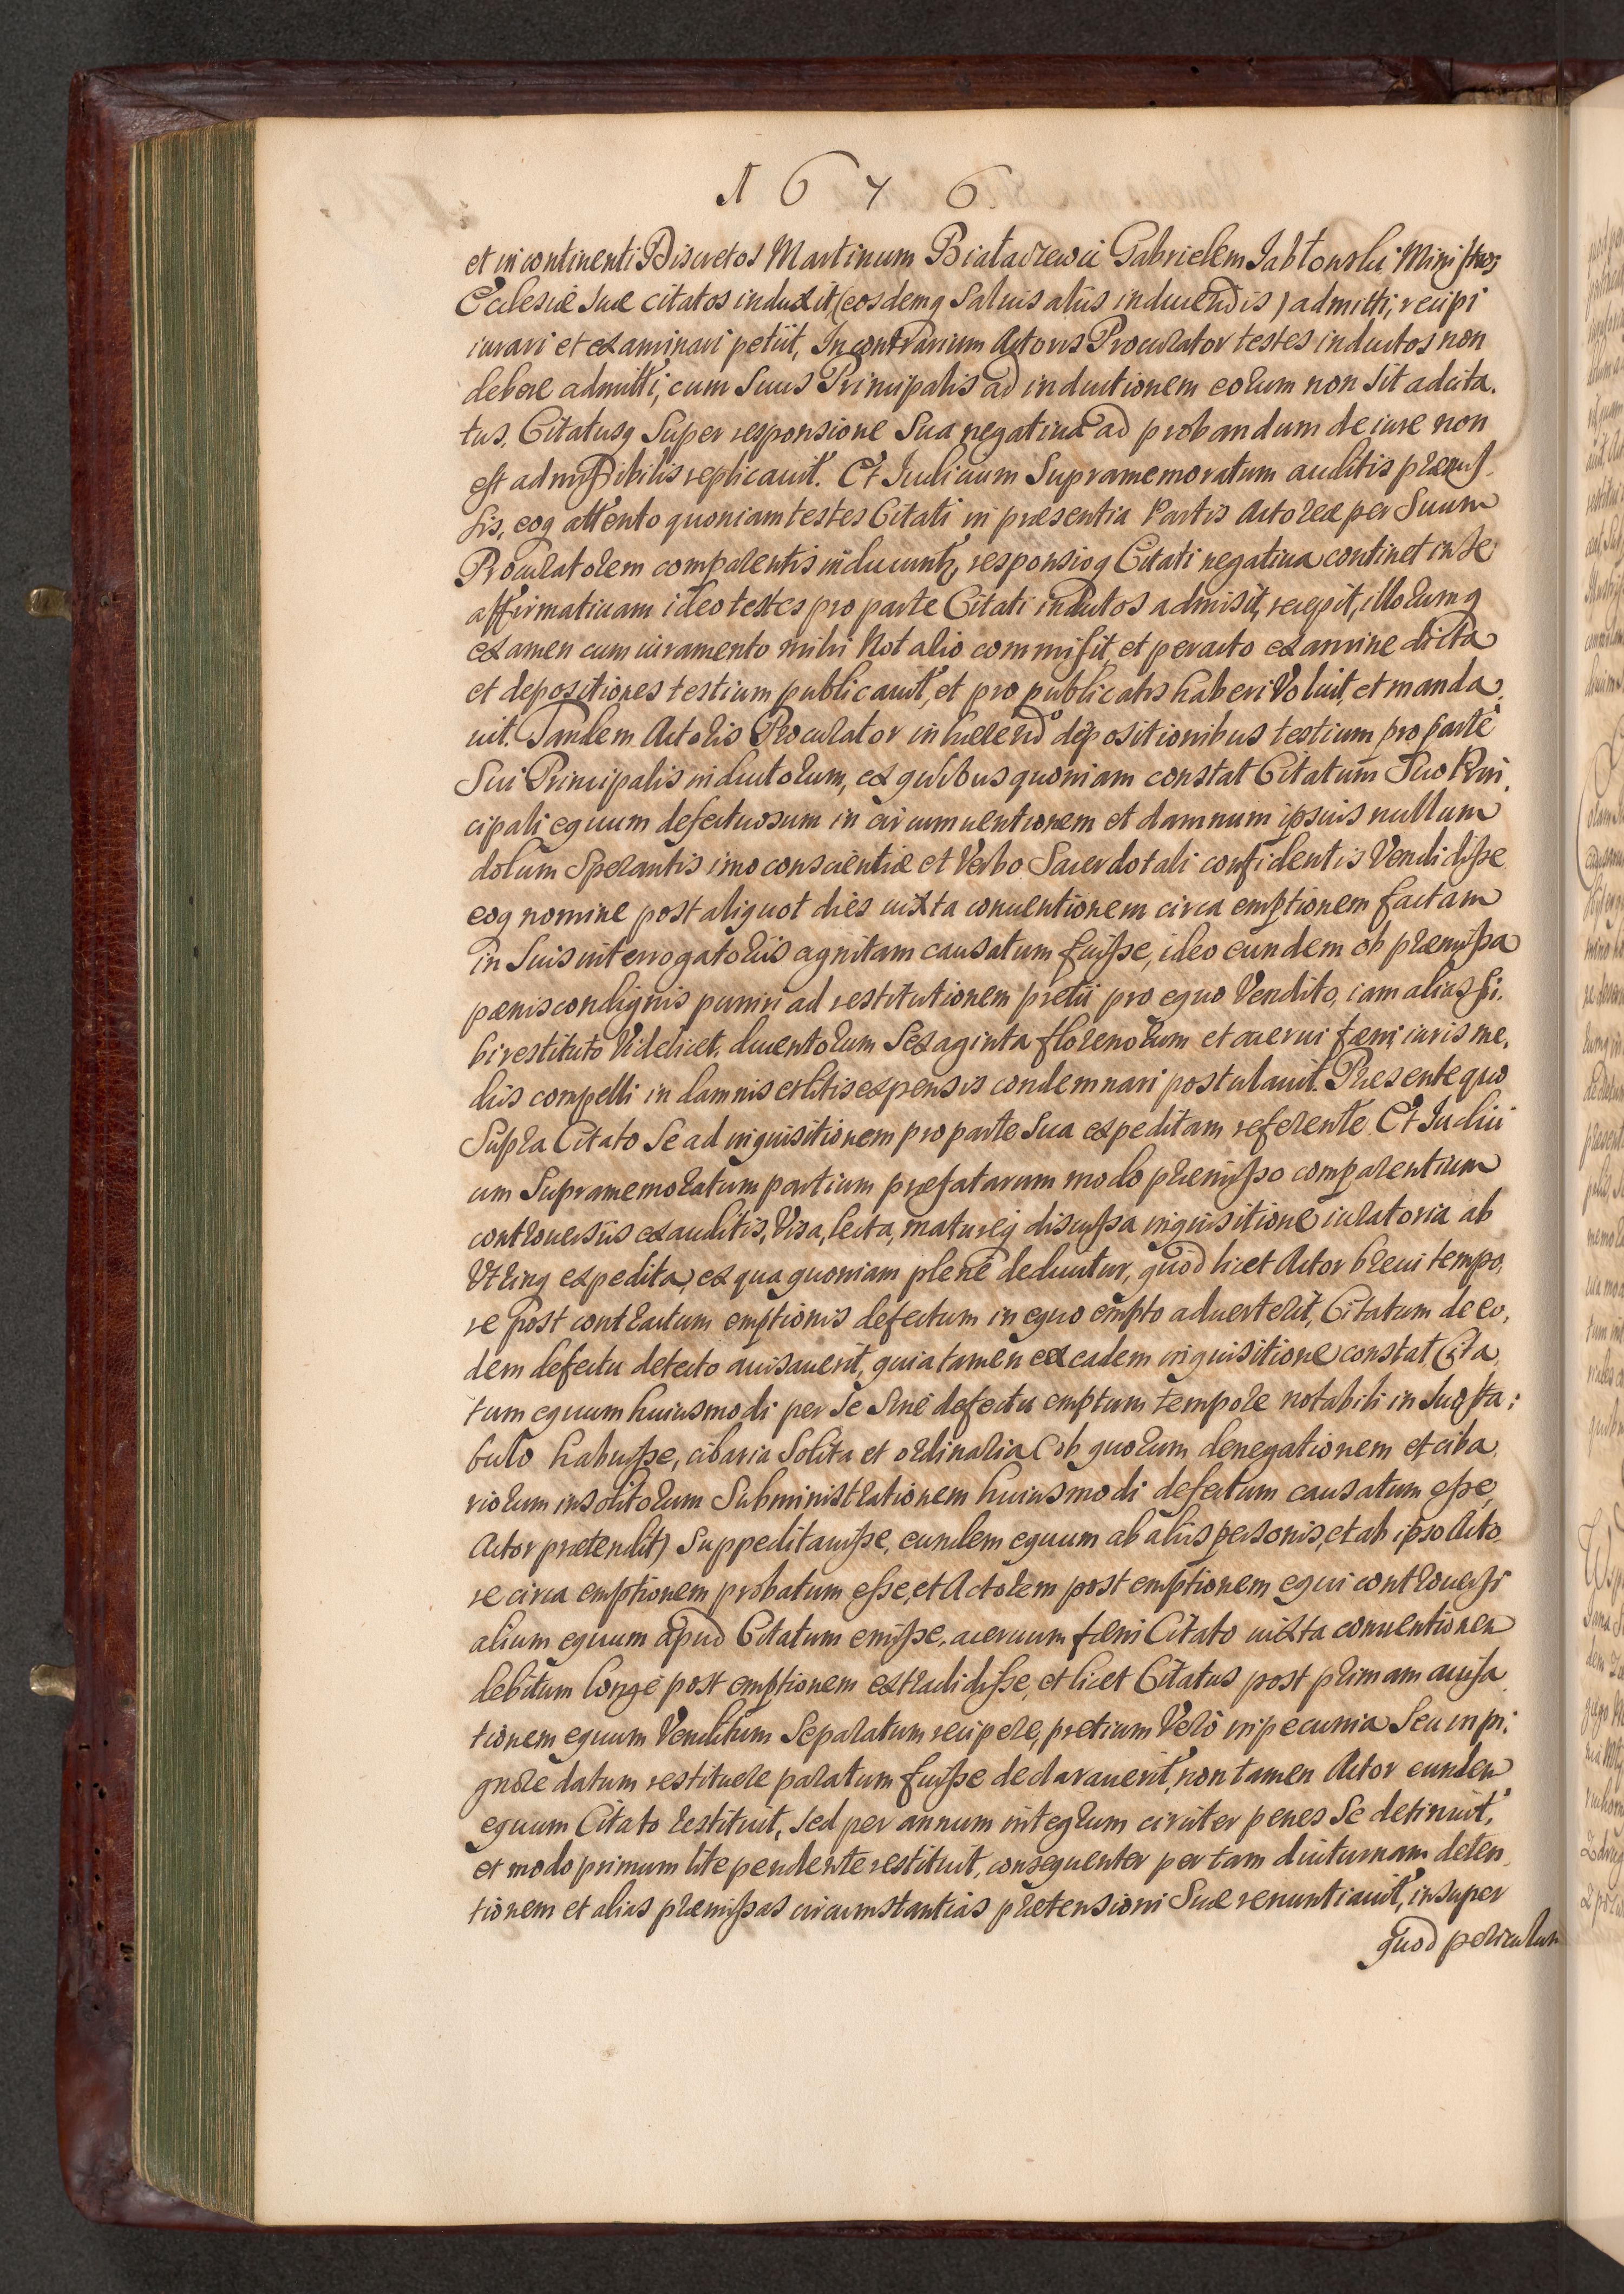 1676
et in continenti Discretos Martinum Białaczewicz Gabrielem Jabłonski Ministros
Ecclesiæ suæ citatos induxit, (eosdemq Saluis alijs inducendis) admitti, recipi
iurari et examinari petiit, In contrarium Actoris Procurator testes inductos non
debere admitti, cum Suus Principalis ad inductionem eorum non Sit adcita.
tus, Citatusq Super responsione Sua negatiua ad probandum de iure non
est admissibilis replicauit. Et Iudicium Supramemoratum auditis præmis.
sis, eoq attento quoniam testes Citati in præsentia Partis Actoreæ per Suum
Procuratorem comparentis inducunt, responsioq Citati negatiua continet in se
affirmatiuam ideo testes pro parte Citati inductos admisit, recepit, illorumq
examen cum iuramento mihi Notario commisit, et peracto examine dicta
et depositiones testium publicauit, et pro publicatis haberi Voluit, et manda,
uit. Tandem Actoris Procurator inhærendo depositionibus testium pro parte
Sui Principalis inductorum, ex quibus quoniam constat Citatum Suo Prin,
cipali equum defectuosum in circumuentionem et damnum ipsius nullum
dolum Sperantis imo conscientiæ et Verbo Sacerdotali confidentis Vendidisse
eoq nomine post aliquot dies iuxta conuentionem circa emptionem factam
in Suis interrogatorijs agnitam causatum fuisse, ideo eundem ob præmissa
pænis condignis puniri ad restitutionem pretij pro equo Vendito, iam alias si,
bi restituto Videlicet, ducentorum Sexaginta florenorum et acerui fæni iuris me,
dijs compelli in damnis et litis expensis condemnari postulauit. Præsente quo
Supra Citato Se ad inquisitionem pro parte Sua expeditam referente. Et Iudici
um Supramemoratum partium præfatarum modo præmisso comparentium
controuersijs exauditis, Visa, lecta, matureq discussa inquisitione iuratoria ab
Vtrinq expedita, ex qua quoniam plenè deducitur, quod licet Actor breui tempo,
re post contractum emptionis defectum in equo empto aduerterit, Citatum de eo,
dem defectu detecto auisauerit, quia tamen ex eadem inquisitione constat, Cita
tum equum huiusmodi per Se Sine defectu emptum tempore notabili in Suo sta:
bulo habuisse, cibaria Solita et ordinaria (ob quorum denegationem et ciba
riorum insolitorum Subministrationem huiusmodi defectum causatum esse,
Actor prætendit) Suppeditauisse, eundem equum ab alijs personis, et ab ipso Acto
re circa emptionem probatum esse, et Actorem post emptionem equi controuersi
alium equum apud Citatum emisse, aceruum fæni Citato iuxta conuentionem
debitum longè post emptionem extradidisse, et licet Citatus post primam auisa
tionem equum Venditum Separatum recipere, pretium Verò in pecunia Seu in pi:
gnore datum restituere paratum fuisse declarauerit, non tamen Actor eundem
equum Citato restituit, Sed per annum integrum circiter penes Se detinuit,
et modo primum lite pendente restituit, consequenter per tam diuturnam deten,
tionem et alias præmissas circumstantias prætensioni Suæ renuntiauit, insuper
quod periculum